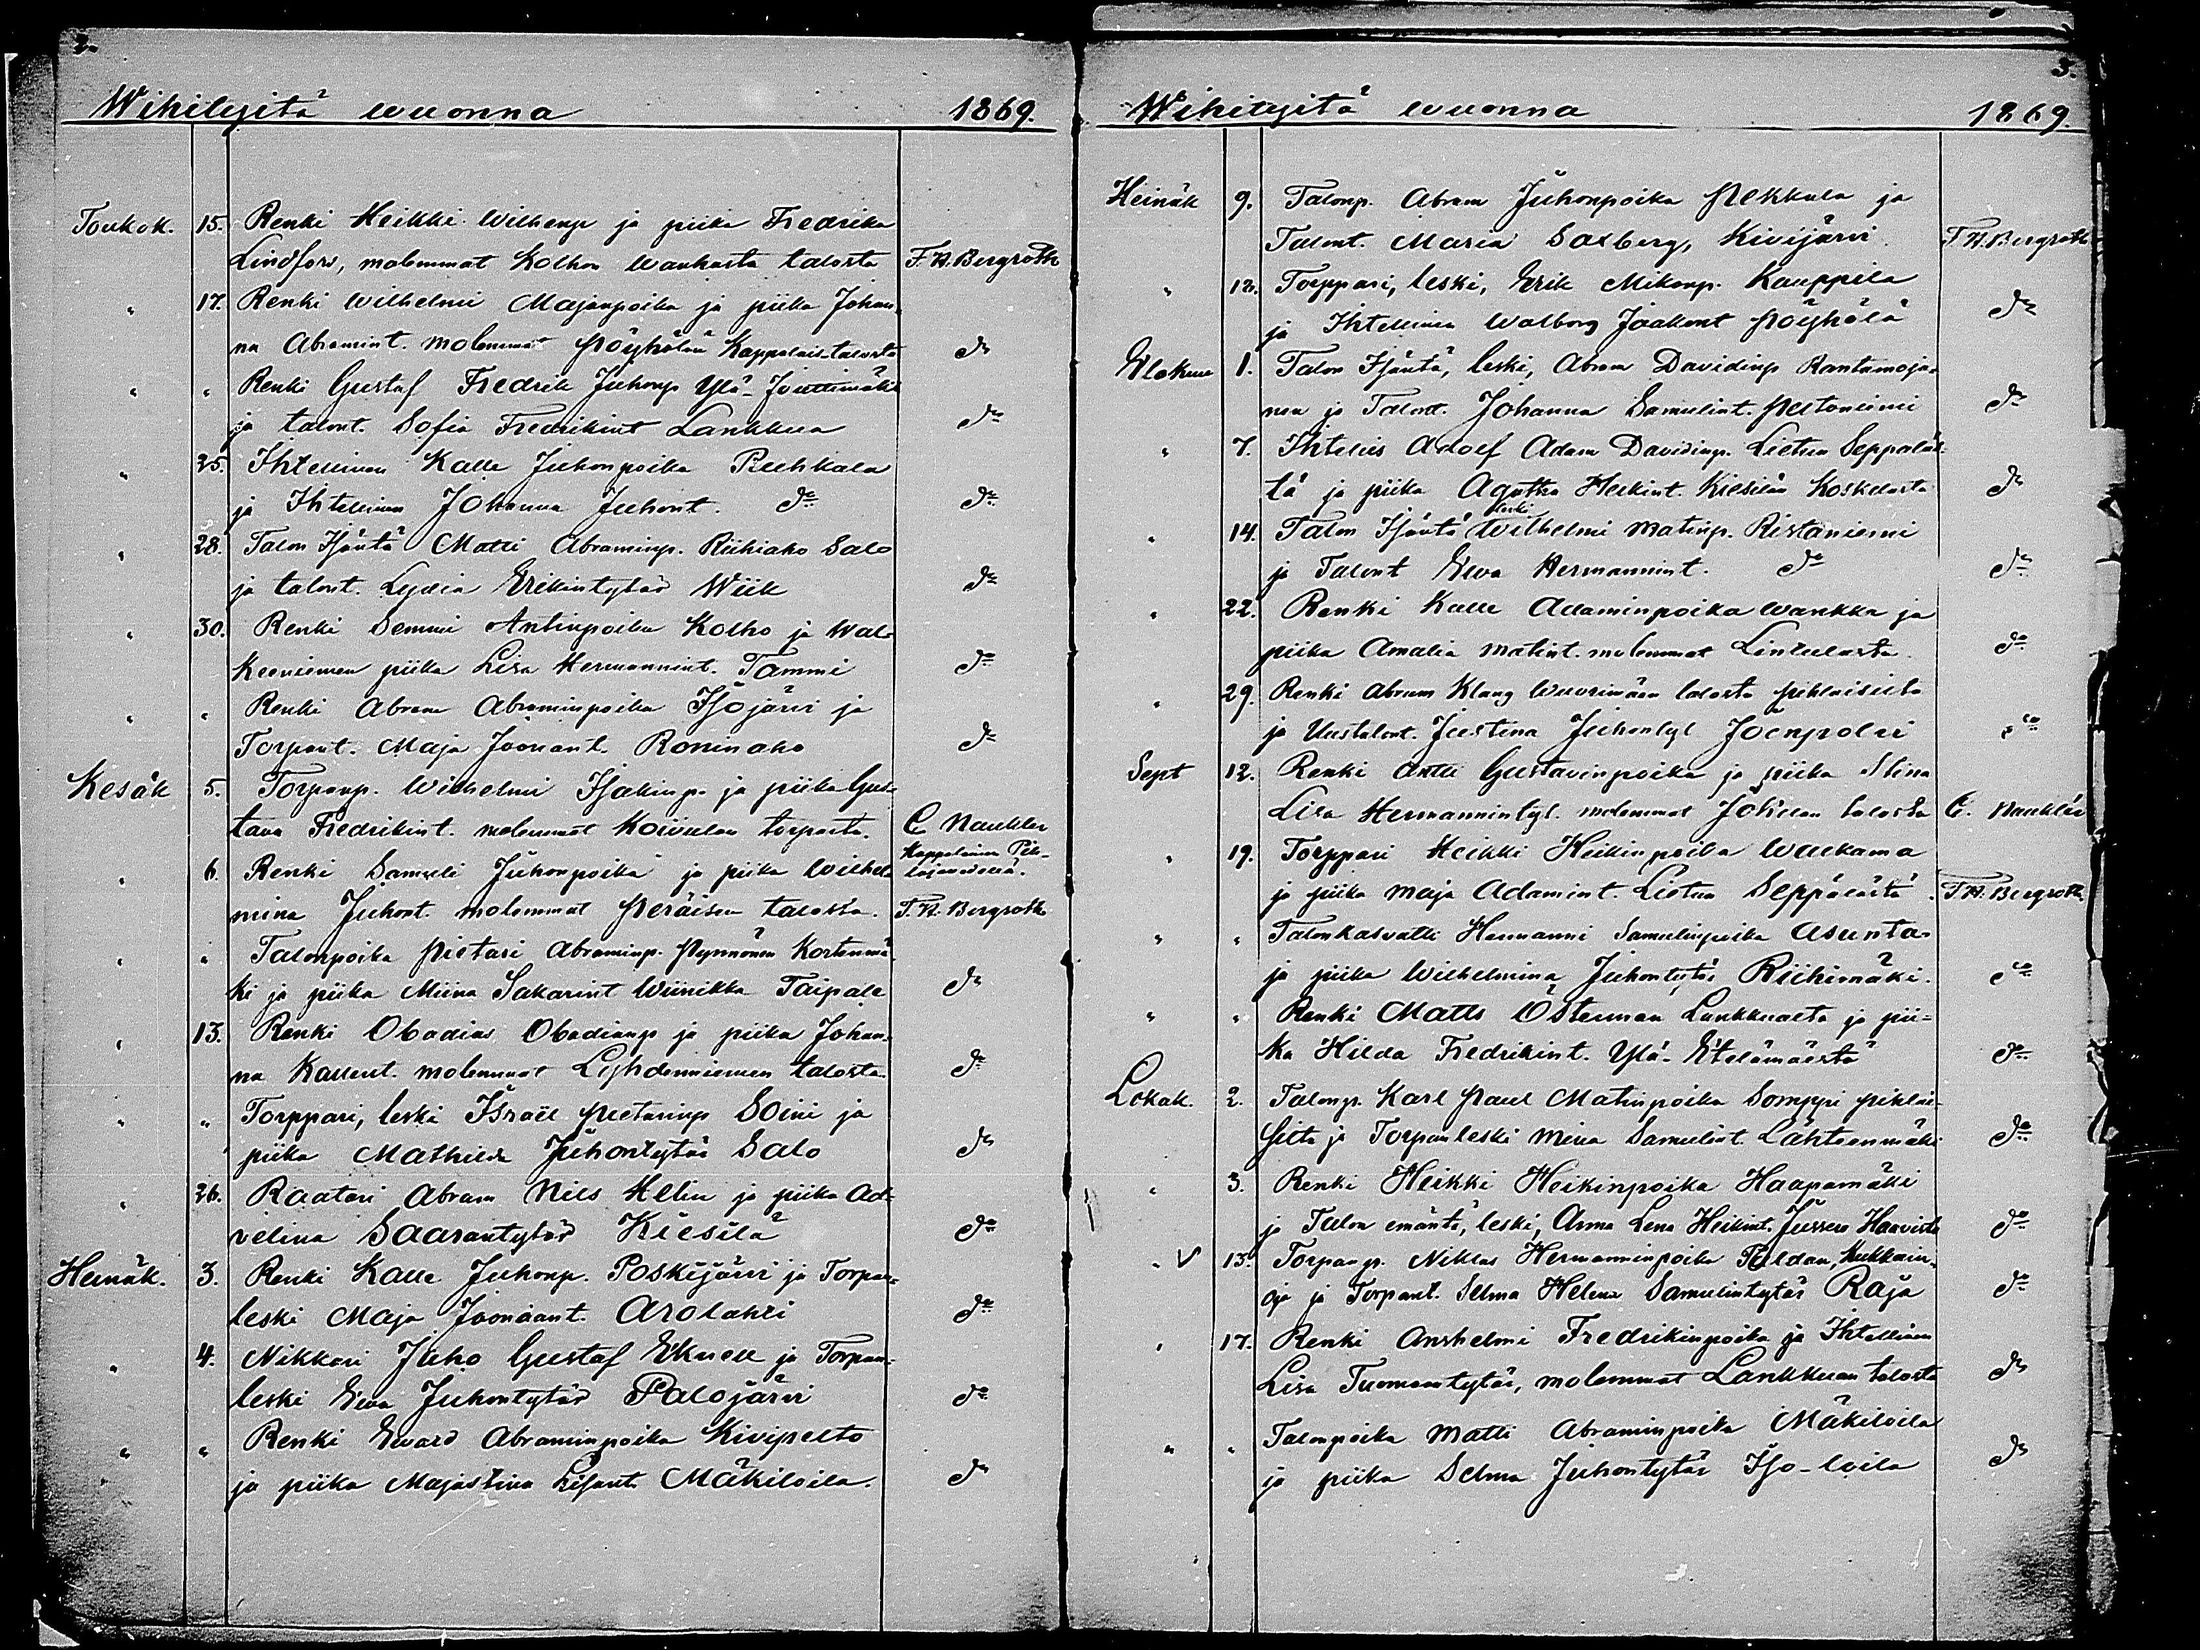 2.
Wihityitä wuonna 1869.
Toukok. 15. Renki Heikki Wilhemp ja piika Fredrika
Lindfors, molemmat Kolhon Wanhasta talosta F. H. Bergroth
" 17. Renki Wilhelmi Majanpoika ja piika Johan-
na Abramint. molemmat Pöyhölän Kappalais-talosta do
" " Renki Gustaf Fredrik Juhonp Ylä-Jouttimäki
ja talont. Sofia Fredrikint Lankkua do
" 25. Ihtellinen Kalle Juhonpoika Puhkala
ja Ihtellinen Johanna Juhont. do do
" 28. Talon Isäntä Matti Abraminp. Riihiaho Salo
ja talont. Lydia Erikintytär Wiik do
" 30. Renki Semmi Antinpoika Kolho ja Wal-
keeniemen piika Lisa Hermannint. Tammi do
" " Renki Abram Abraminpoika Isojärvi ja
Torpant. Maja Joonant. Roninaho do
Kesäk 5. Torpanp. Wilhelmi Isakinp. ja piika Gus-
tava Fredrikint. molemmat Koivulan torpasta. C Naukler
Kappalainen Pih-
lajavedellä.
" 6. Renki Samueli Juhonpoika ja piika Wilhel-
mina Juhont. molemmat Peräisen talosta. F. H. Bergroth
" " Talonpoika Pietari Abraminp. Pynnönen Kortenmä-
ki ja piika Miina Sakarint Wiinikka Taipale do
" 13. Renki Obadias Obadianp ja piika Johan-
na Kallent. molemmat Lyhdenniemen talosta. do
" " Torppari, leski Israel Pietarinp Soini ja
piika Mathilda Juhontytär Salo do
" 26. Raatari Abram Nils Helin ja piika Ad-
velina Saarantytär Kiesilä do
Heinäk. 3. Renki Kalle Juhonp. Poskijärvi ja Torpan-
leski Maja Joonaant. Arolahti do
" 4. Nikkari Juho Gustaf Eknell ja Torpan-
leski Ewa Juhontytär Palojärvi do
" " Renki Eward Abraminpoika Kivipelto
ja piika Majastina Lisant. Mäkiloila. do
3.
Wihityitä wuonna 1869.
Heinäk 9. Talonp. Abram Juhonpoika Pekkala ja
Talont. Maria Saxberg, Kivijärvi. F. H. Bergroth
" 18. Torppari, leski, Erik Mikonp. Kauppila
ja Ihtellinen Walborg Jaakont Pöyhölä do
Elokuu 1. Talon Isäntä, leski, Abram Davidinp Rantamoja-
nen ja Talont. Johanna Samulint. Peltoniemi do
" 7. Ihtelles Adolf Adam Davidinp. Lietsu Seppäläs-
tä ja piika Agatha Heikint. Kiesilän Koskelasta do
leski
" 14. Talon Isäntä Wilhelmi Matinp. Ristaniemi
ja Talont Ewa Hermannint. do do
" 22. Renki Kalle Adaminpoika Wankka ja
piika Amalia Matint. molemmat Lintulasta. do
" 29. Renki Abram Klang Wuorimäen talosta Pihlaisista
ja Uustalont. Justina Juhontyt Joenpolvi do
Sept 12. Renki Antti Gustavinpoika ja piika Stina
Lisa Hermannintyt. molemmat Jokelan talosta C. Naukler
" 19. Torppari Heikki Heikinpoika Waskama
ja piika Maja Adamint. Lietsu Seppälästä. F. H. Bergroth.
" " Talonkasvatti Hermanni Samulinpoika Asunta
ja piika Wilhelmina Juhontytär Riihimäki. do
" " Renki Matts Österman Lankkualta ja pii-
ka Hilda Fredrikint. Ylä-Etelämäestä do
Lokak. 2. Talonp. Karl Paul Matinpoika Somppi Pihlai-
sista ja Torpanleski Miina Samulint. Lähteenmäki do
" 3. Renki Heikki Heikinpoika Haapamäki
ja Talon emäntä, leski, Anna Lena Heikint. Jussun Haavisto do
" V 13. Torpanp. Niklas Hermanninpoika Poldan, Kukkain-
oja ja Torpant. Selma Helena Samulintytär Raja do
" 17. Renki Anshelmi Fredrikinpoika ja Ihtellinen
Lisa Tuomaantytär, molemmat Lankkuan talosta do
" " Talonpoika Matti Abraminpoika Mäkiloila
ja piika Selma Juhontytär Iso-loila do